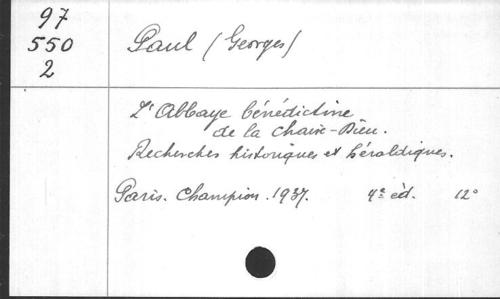 97
550
2
Paul (Georges)
L'Abbaye bénédictine
de la Chaise-Dieu.
Recherches historiques et héraldiques.
Paris. Champion. 1937. 4e éd. 12°